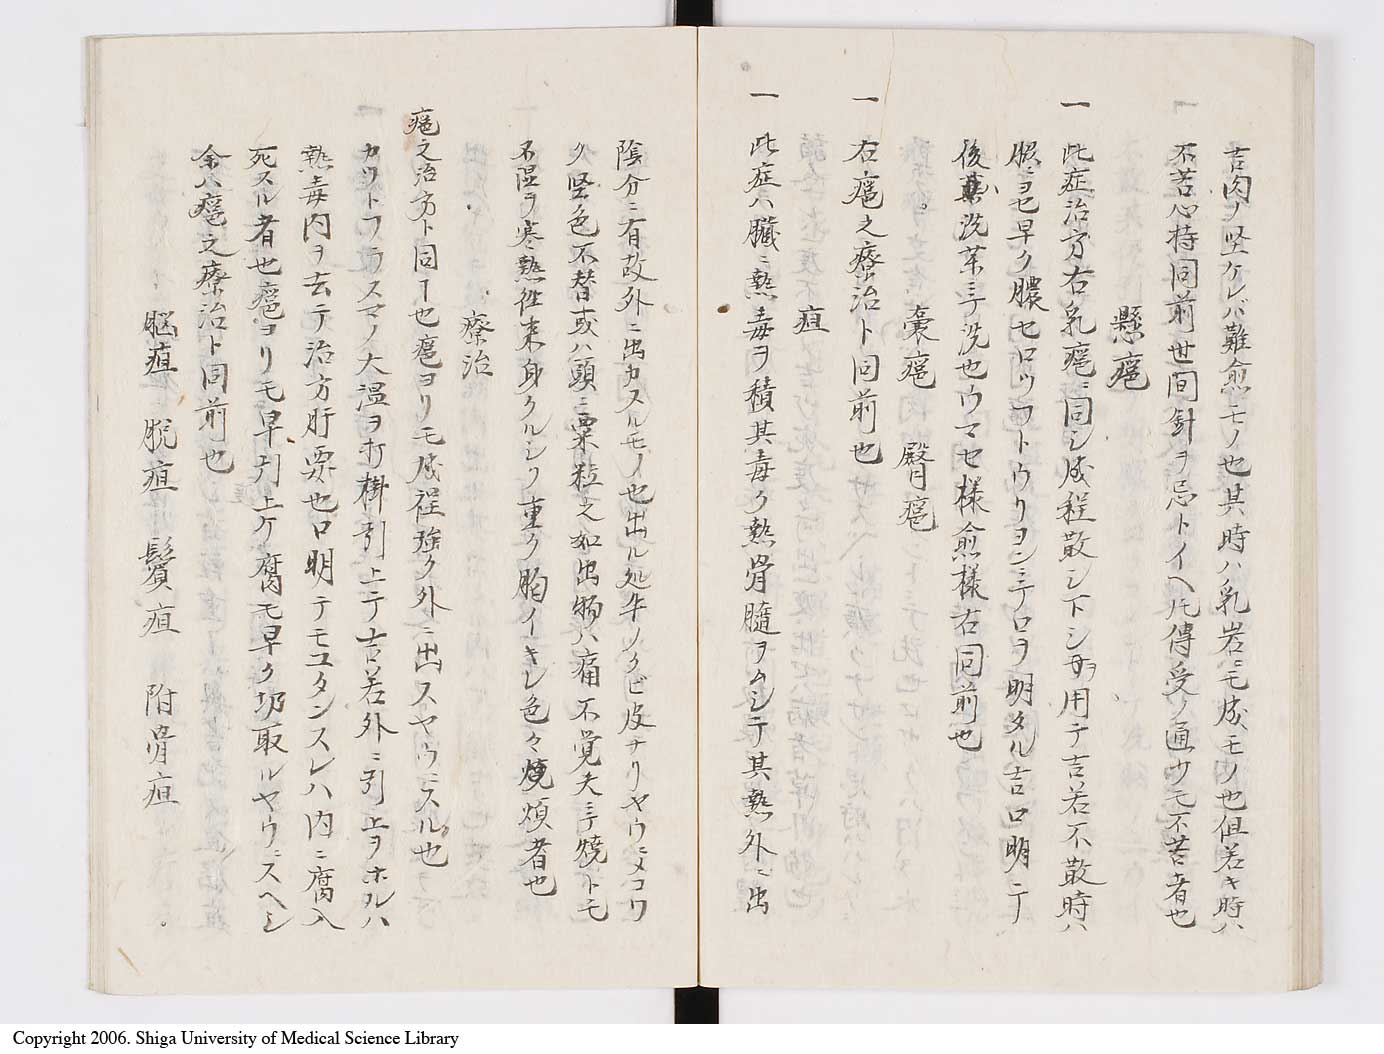 吉肉ノ堅ケレバ難愈モノ也其時ハ乳岩ニモ成モノ也但若キ時ハ
不苦心持同前世间針ヲ忌トイヘ𪜈傳受ノ通サモ不苦者也
懸瘟
一 此症治方右乳瘟ニ同シ成程散シ下シヲ用テ吉若不散時ハ
ヲセ早ク膿セロツコトウリヨンニテ口ヲ明タル吉口明テ
後洗薬ニテ洗也ウマセ様愈様右同前也
嚢瘟 臀瘟
一 右瘟之療治ト同前也
疽
一 此症ハ臓ニ熱毒ヲ積其毒ク熱骨髄ヲムシテ其熱外ニ出
陰分ニ有故外ニ出カスルモノ也出ル処牛ノクビ皮ナリヤウニメコワ
ク堅色不替或ハ頭ニ粟粒之如出物ハ痛不覚夫ニテ焼トモ
不湿ヲ寒熱往来身クルシク重ク胸イキレ色々焼煩者也
療治
瘟之治方ト同フ也瘟ヨリモ成程強ク外ニ出スヤウニスル也
カツトフラスマノ大温ヲ打掛引上テ吉若外ニ引上ヲホルハ
熱毒内ヲ去テ治方肝要也口明テモユタンスレハ内ニ腐入
死スル者也瘟ヨリモ早引上ケ腐モ早ク切取ルヤウニスヘシ
余ハ瘟之療治ト同前也
脳疽 脱疽 鬢疽 附骨疽
Copyright 2006. Shiga University of Medical Science Library